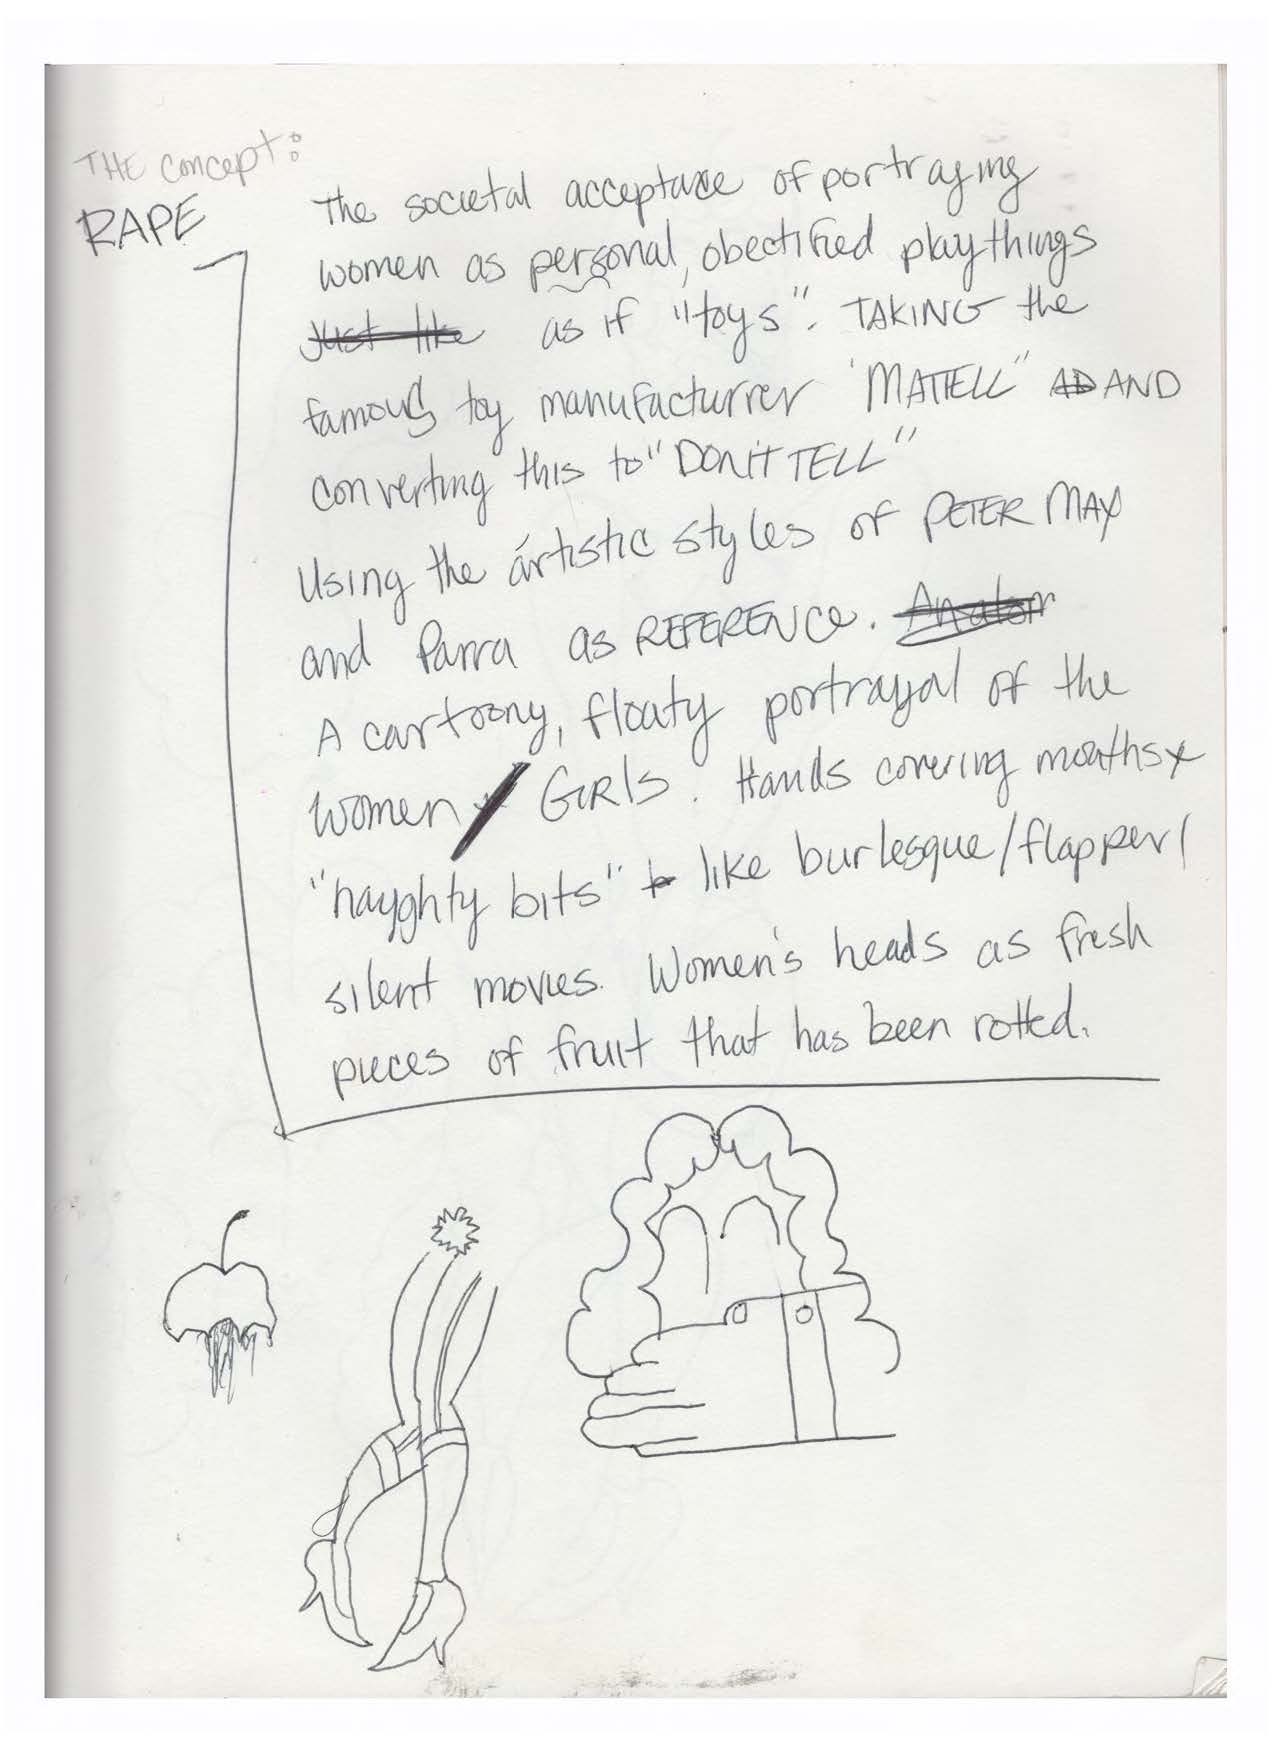 THE concept:
RAPE
The societal acceptance of portraying
women as personal, obectified playthings
Just like as if "toys". TAKING the
famous toy manufacturrer 'MATTELL" AD AND
converting this to "DON'T TELL"
Using the artistic styles of PETER MAX
and Parra as REFERENCE.
A cartoony, floaty portrayal of the
women / GIRLS. Hands covering mouths &
"nayghty bits" like burlesque/flapper/
silent movies. Women's heads as fresh
pieces of fruit that has been rotted.